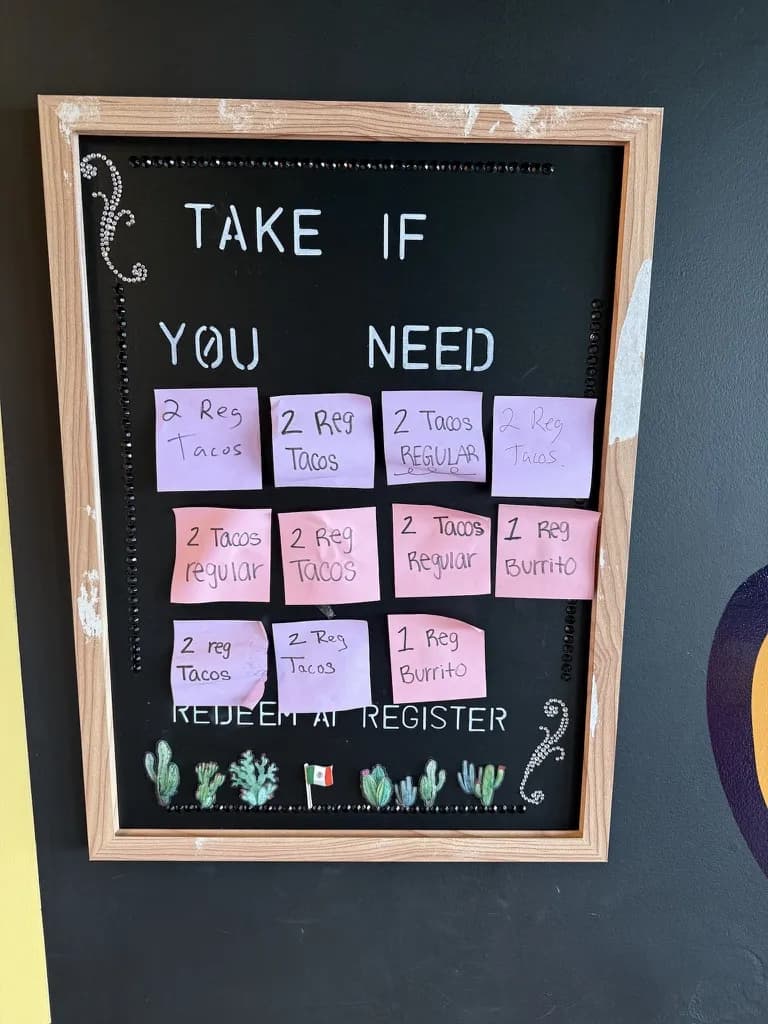 TAKE IF
YOU NEED
2 Reg
Tacos
2 Reg
Tacos
2 Tacos
REGULAR
2 Reg
Tacos.
2 Tacos
regular
2 Reg
Tacos
2 Tacos
Regular
1 Reg
Burrito
2 reg
Tacos
2 Reg
Tacos
1 Reg
Burrito
REDEEM AT REGISTER